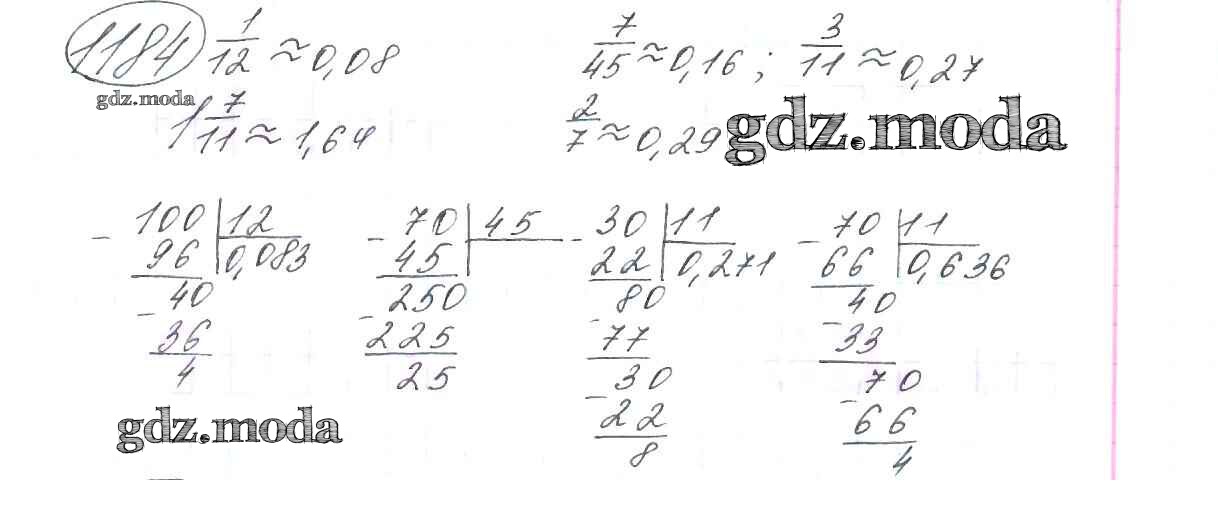 1184 1/12 ≈ 0,08 7/45 ≈ 0,16 ; 3/11 ≈ 0,27
gdz.moda
1 7/11 ≈ 1,64 2/7 ≈ 0,29 gdz.moda
- 100 | 12 - 70 | 45 - 30 | 11 - 70 | 11
96 | 0,083 45 22 | 0,271 66 | 0,636
- 40 - 250 - 80 - 40
36 225 77 33
4 25 - 30 - 70
22 66
8 4
gdz.moda